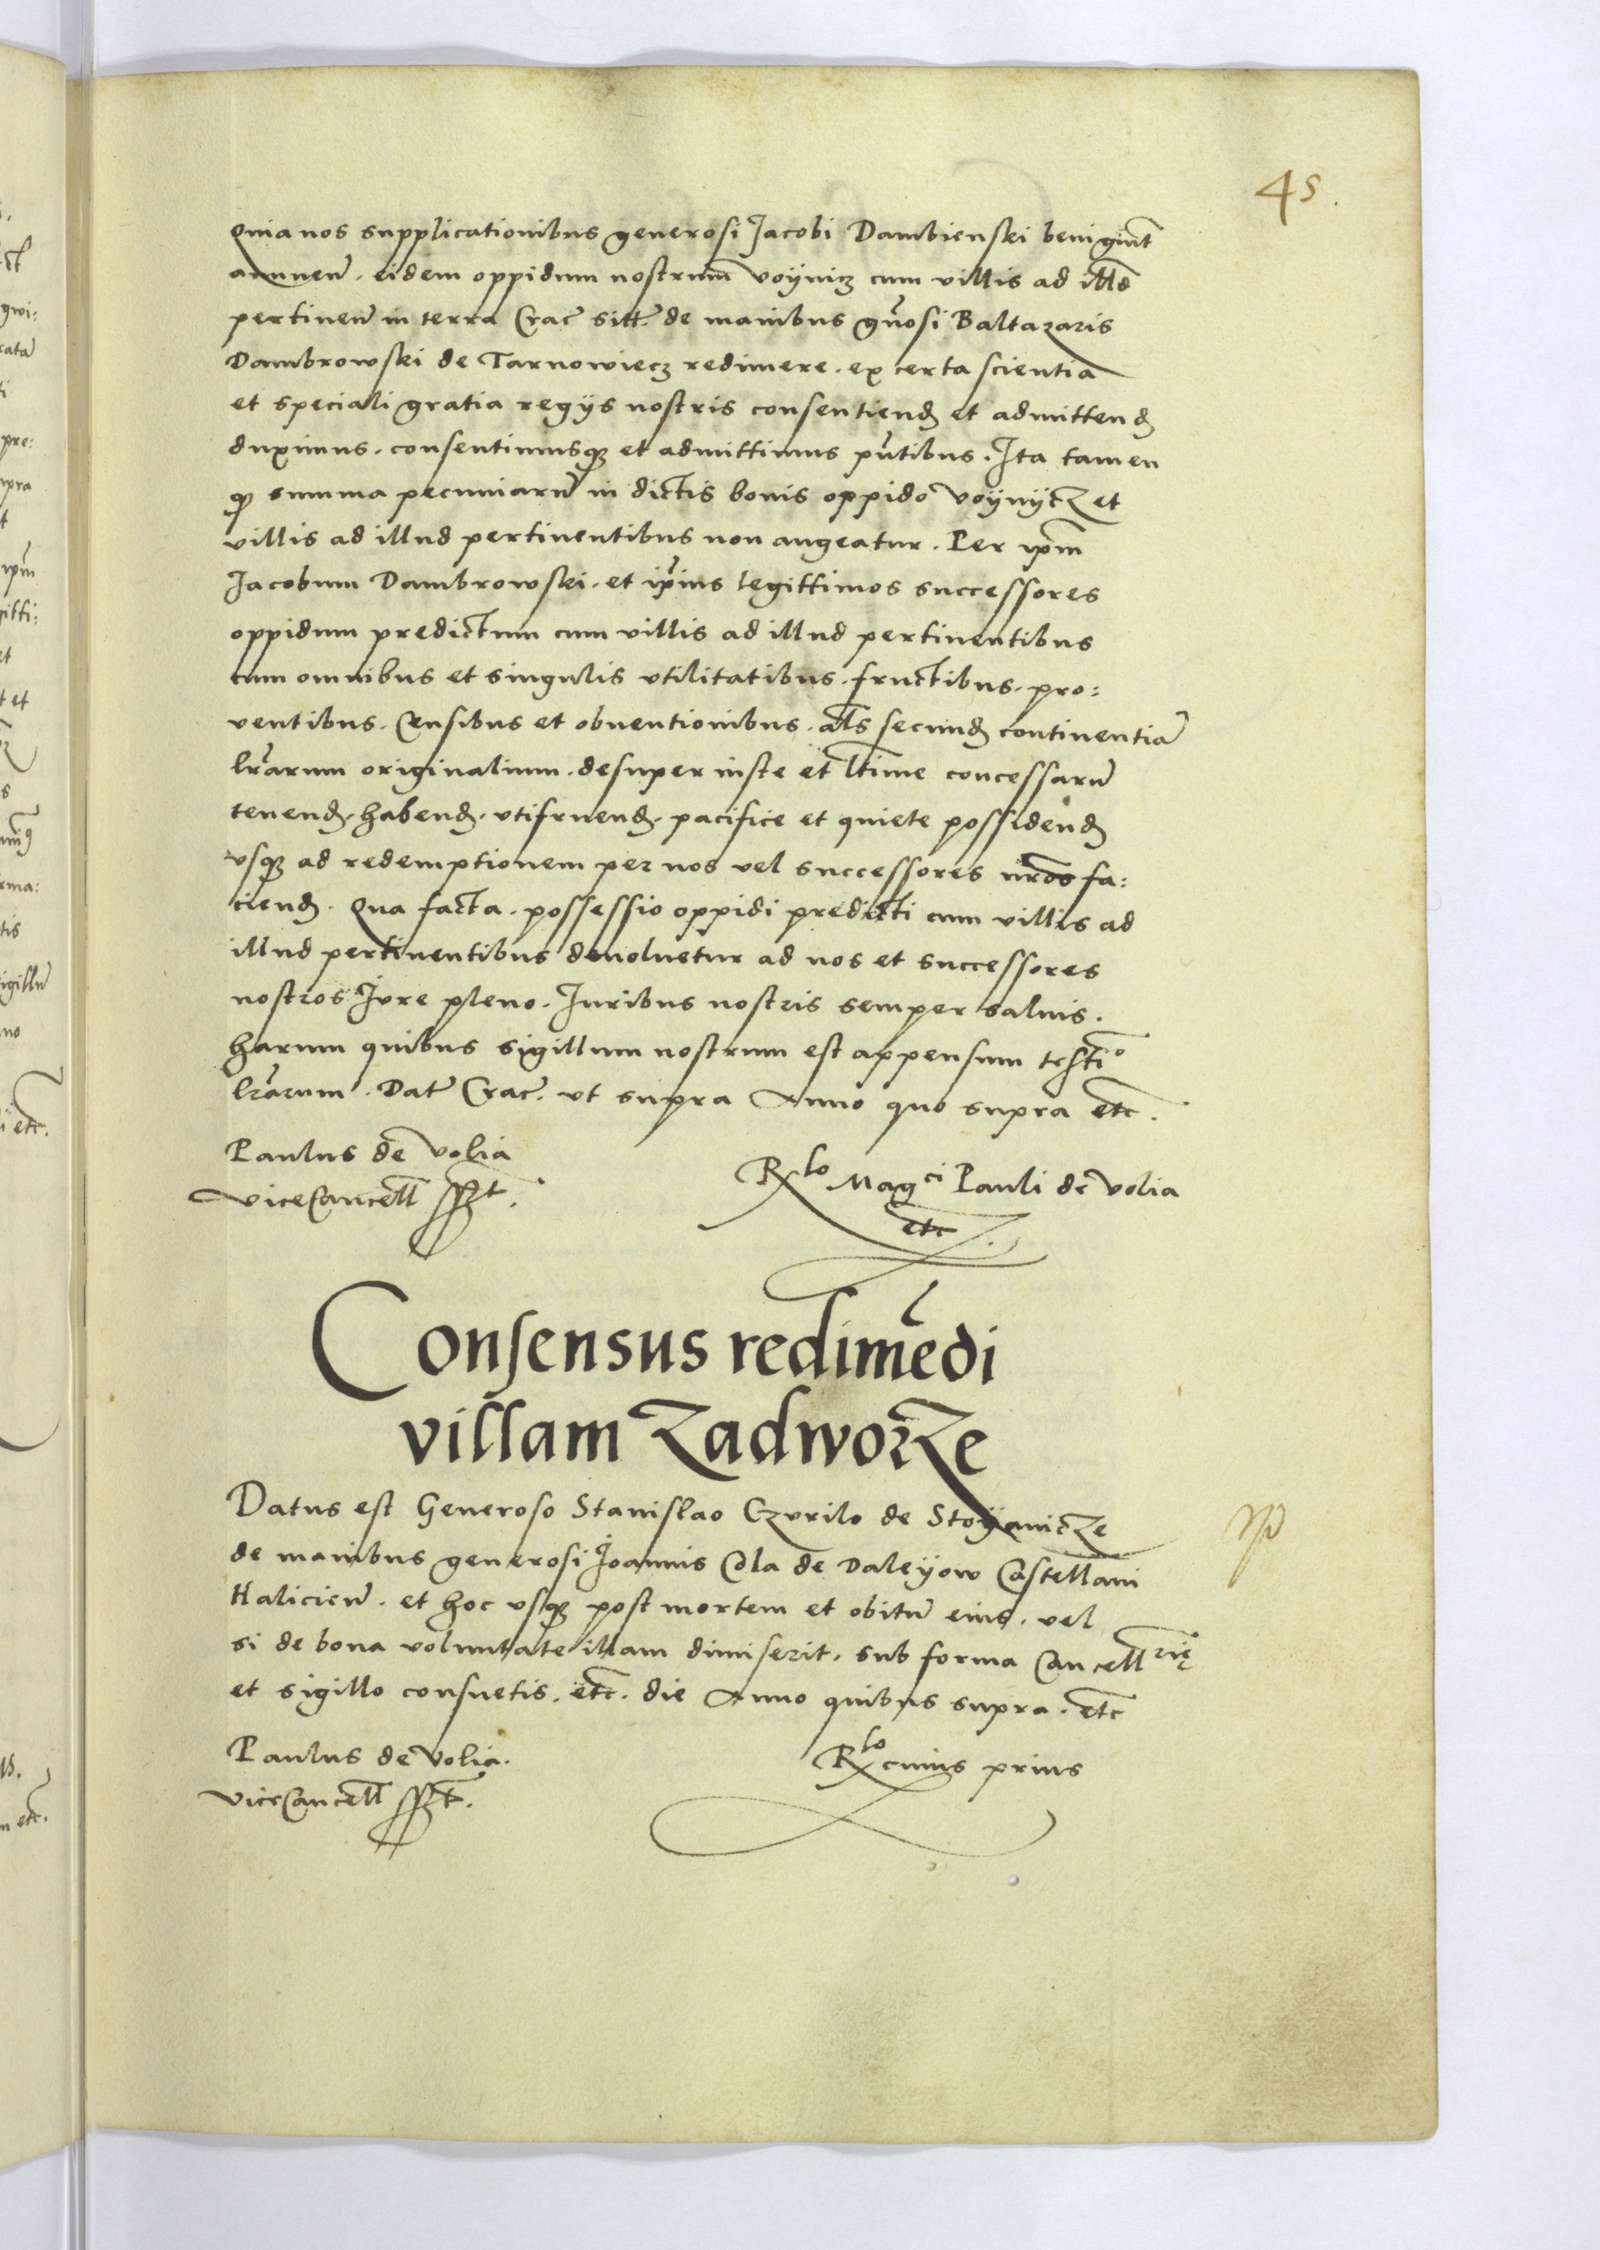 45.
quia nos supplicationibus generosi Jacobi Dambienski benigīnt
annuen̄. eidem oppidum nostrum voynicz cum villis ad illd
pertinen̄ in terra Crac̄ sitt̄. de manibus gn̄osi Baltazaris
Dambrowski de Tarnowiecz redimere. ex certa scientia
et speciali gratia regijs nostris consentiend̄ et admittend̄
duximus. consentimusq; et admittimus pn̄tibus. Ita tamen
q summa pecuniarū in dictis bonis oppido voynycz et
villis ad illud pertinentibus non augeatur. Per ipm̄
Jacobum Dambrowski. et ip̄ius legittimos successores
oppidum predictum cum villis ad illud pertinentibus
cum omnibus et singulis vtilitatibus. fructibus. pro:
ventibus. Censibus et obuentionibus. als secund̄ continentiā
lr̄arum originalium. desuper iuste et ltīme concessarū
tenend̄. habend̄. vtifruend̄. pacifice et quiete possidend̄
vsq; ad redemptionem per nos vel successores nr̄os fa:
ciend̄. Qua facta. possessio oppidi predicti cum villis ad
illud pertinentibus deuoluetur ad nos et successores
nostros Jure pleno. Juribus nostris semper saluis.
harum quibus sigillum nostrum est appensum testio
lr̄arum. Dat̄ Crac̄. ut supra Anno quo supra etc.
Paulus de volia
viceCancell̄ sst.
Rlo Magci Pauli de volia
etc.
Consensus redimēdi
villam Zadworze
Datus est Generoso Stanislao Czurilo de Stoyanicze
de manibus generosi Joannis Cola de Daleyow Castellani
Halicien̄. et hoc vsq; post mortem et obitū eius. vel
si de bona voluntate illam dimiserit. sub forma Cancellrię
et sigillo consuetis. etc. die Anno quibus supra. etc
Paulus de Volia.
viceCancell̄ sst.
Rlo cuius prius